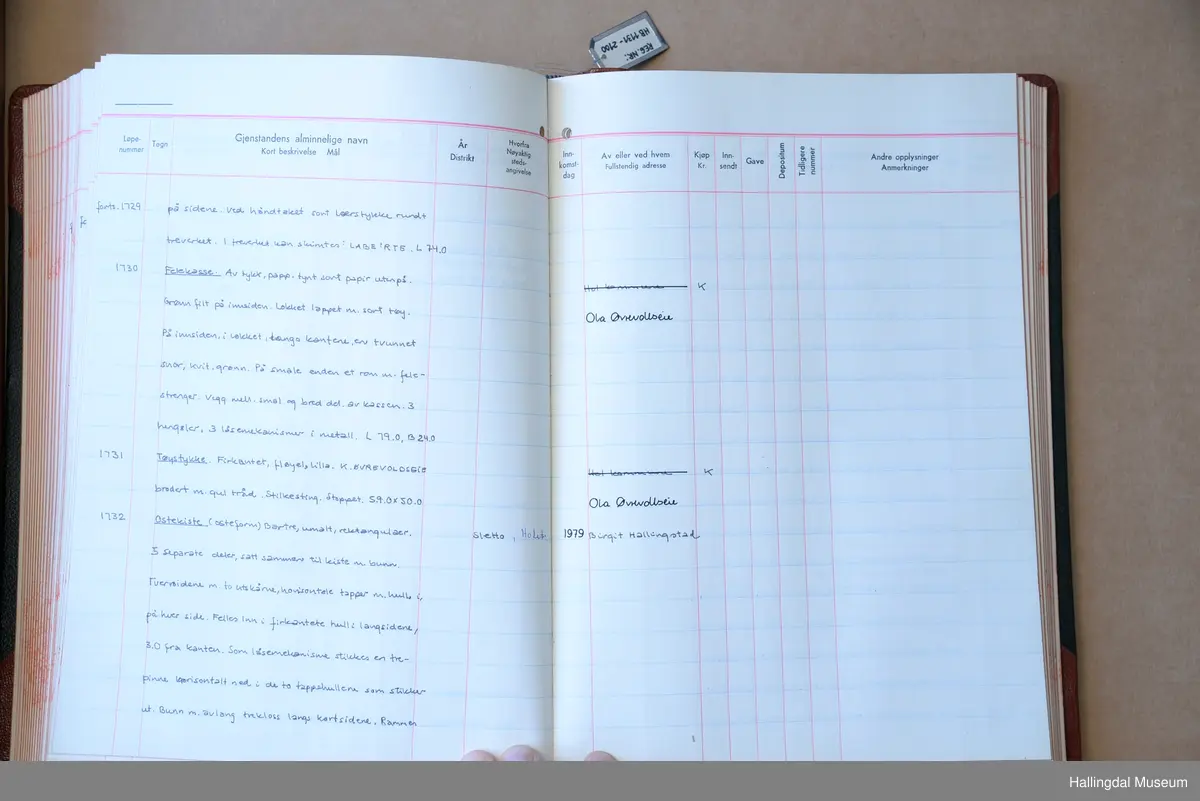 REG.NR:
HB 1131-2100
Løpe-
nummer
Tegn
Gjenstandens alminnelige navn
Kort beskrivelse Mål
År
Distrikt
Hvorfra
Nøyaktig
steds-
angivelse
Inn-
komst-
dag
Av eller ved hvem
Fullstendig adresse
Kjøp
Kr.
Inn-
sendt
Gave
Depositum
Tidligere
nummer
Andre opplysninger
Anmerkninger
forts. 1729 på sidene. Ved håndtaket sort lærstykke rundt
treverket. I treverket kan skimtes: LABE'RTE. L 74.0
1730 Felekasse. Av tykk, papp. tynt sort papir utenpå.
Hol kommune K
Grønn filt på innsiden. Lokket lappet m. sort tøy.
Ola Øvrevollseie
På innsiden, i lokket, langs kantene, en tvunnet
snor, kvit, grønn. På smale enden et rom m. fele-
strenger. Vegg mell. smal og bred del av kassen. 3
hengsler, 3 låsemekanismer i metall. L 79.0, B 24.0
1731 Tøystykke. Firkantet, fløyel, lilla. K. EVREVOLDSEIE
Hol kommune K
brodert m. gul tråd. Stilkesting. Stoppet. 59.0 x 50.0
Ola Øvrevollseie
1732 Ostekiste (osteform) Bartre, umalt, rektangulær.
Sletto, Holet 1979 Birgit Hallingstad
5 separate deler, satt sammen til kiste m. bunn.
Tverrsidene m. to utskårne, horisontale tapper m. hull i,
på hver side. Felles inn i firkantete hull i langsidene,
3.0 fra kanten. Som låsemekanisme stikkes en tre-
pinne horisontalt ned i de to tappehullene som stikker
ut. Bunn m. avlang trekloss langs kortsidene. Rammen
Hallingdal Museum